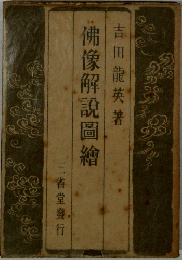 吉田龍英著
佛像解說圖繪
三省堂發行